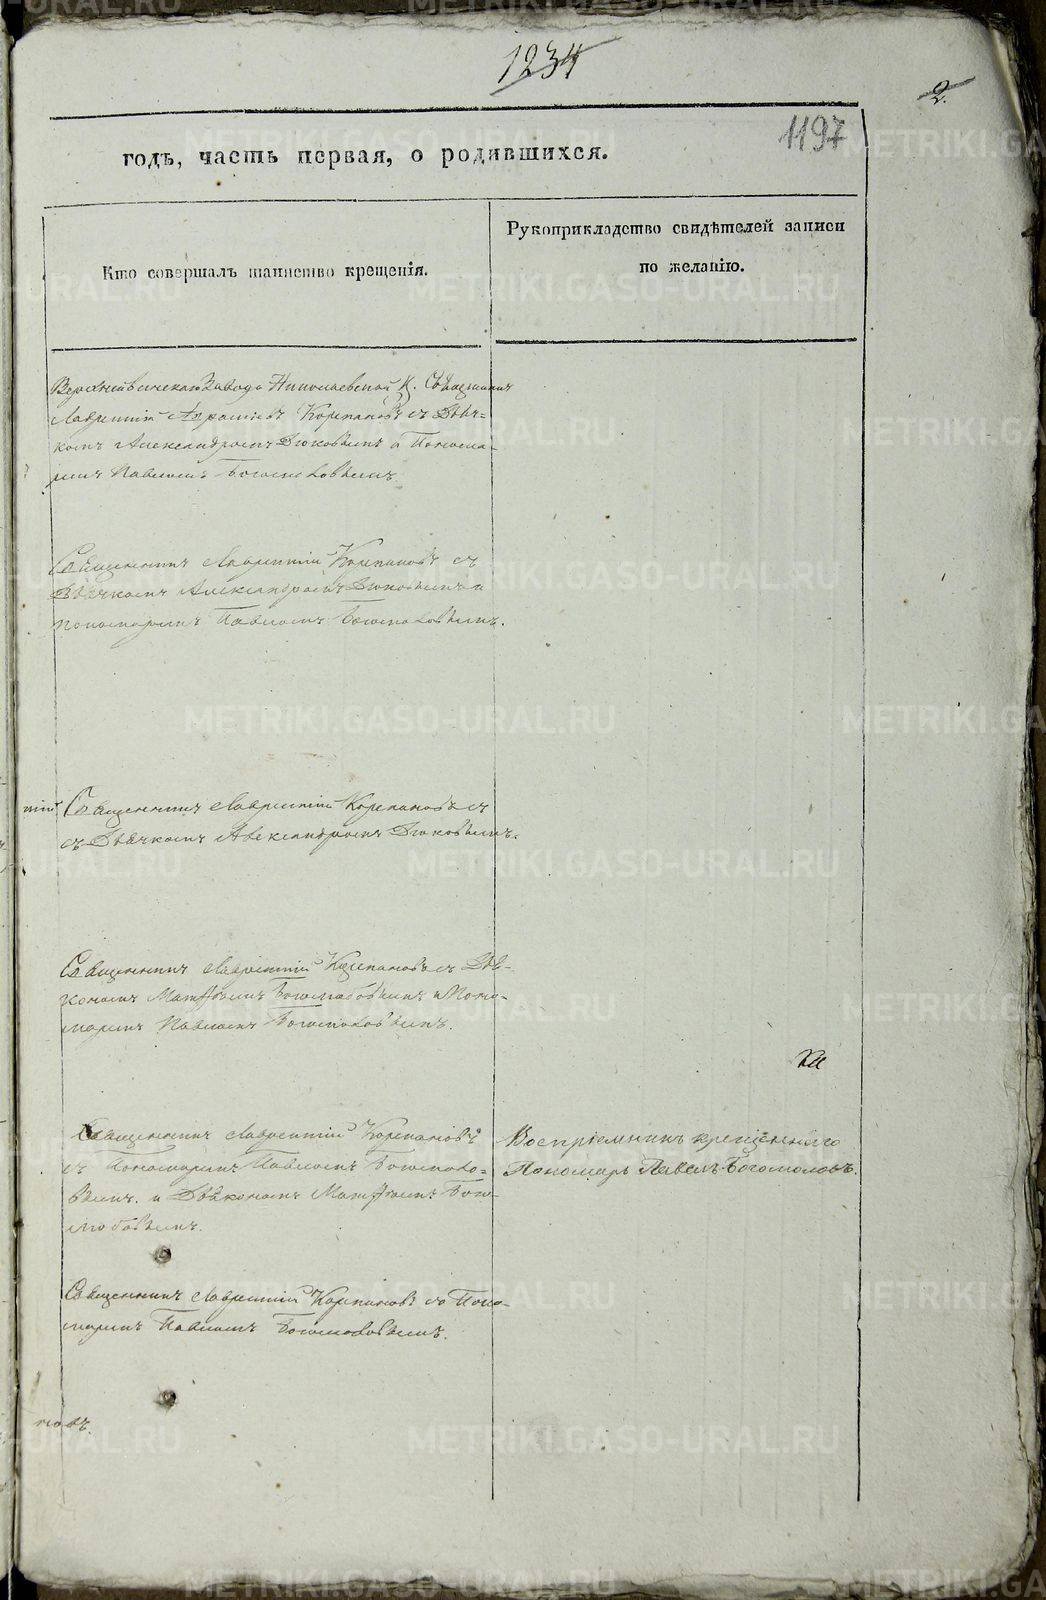 1234
2.
1197
годъ, часть первая, о родившихся.
Кто совершалъ таинство крещенія.
Рукоприкладство свидѣтелей записи
по желанію.
Завода Николаевской Ц. Священникъ
Лаврентій Корепановъ съ Дьяч-
комъ Александромъ Дюковымъ и Понома-
ремъ Павломъ Богомоловымъ
Священникъ Лаврентій Корепановъ съ
Дьячкомъ Александромъ Дюковымъ и
Пономаремъ Павломъ Богомоловымъ.
Священникъ Лаврентій Корепановъ съ
съ Дьячкомъ Александромъ Дюковымъ.
Священникъ Лаврентій Корепановъ съ Діа-
кономъ Матфіемъ Боголюбовымъ и Поно-
маремъ Павломъ Богомоловымъ.
Священникъ Лаврентій Корепановъ
съ Пономаремъ Павломъ Богомоло-
вымъ. и Діакономъ Матфіемъ Бого-
любовымъ.
Воспріемникъ крещённаго
Пономарь Павелъ Богомоловъ.
Священникъ Лаврентій Корепановъ со Поно-
маремъ Павломъ Богомоловымъ.
METRIKI.GASO-URAL.RU